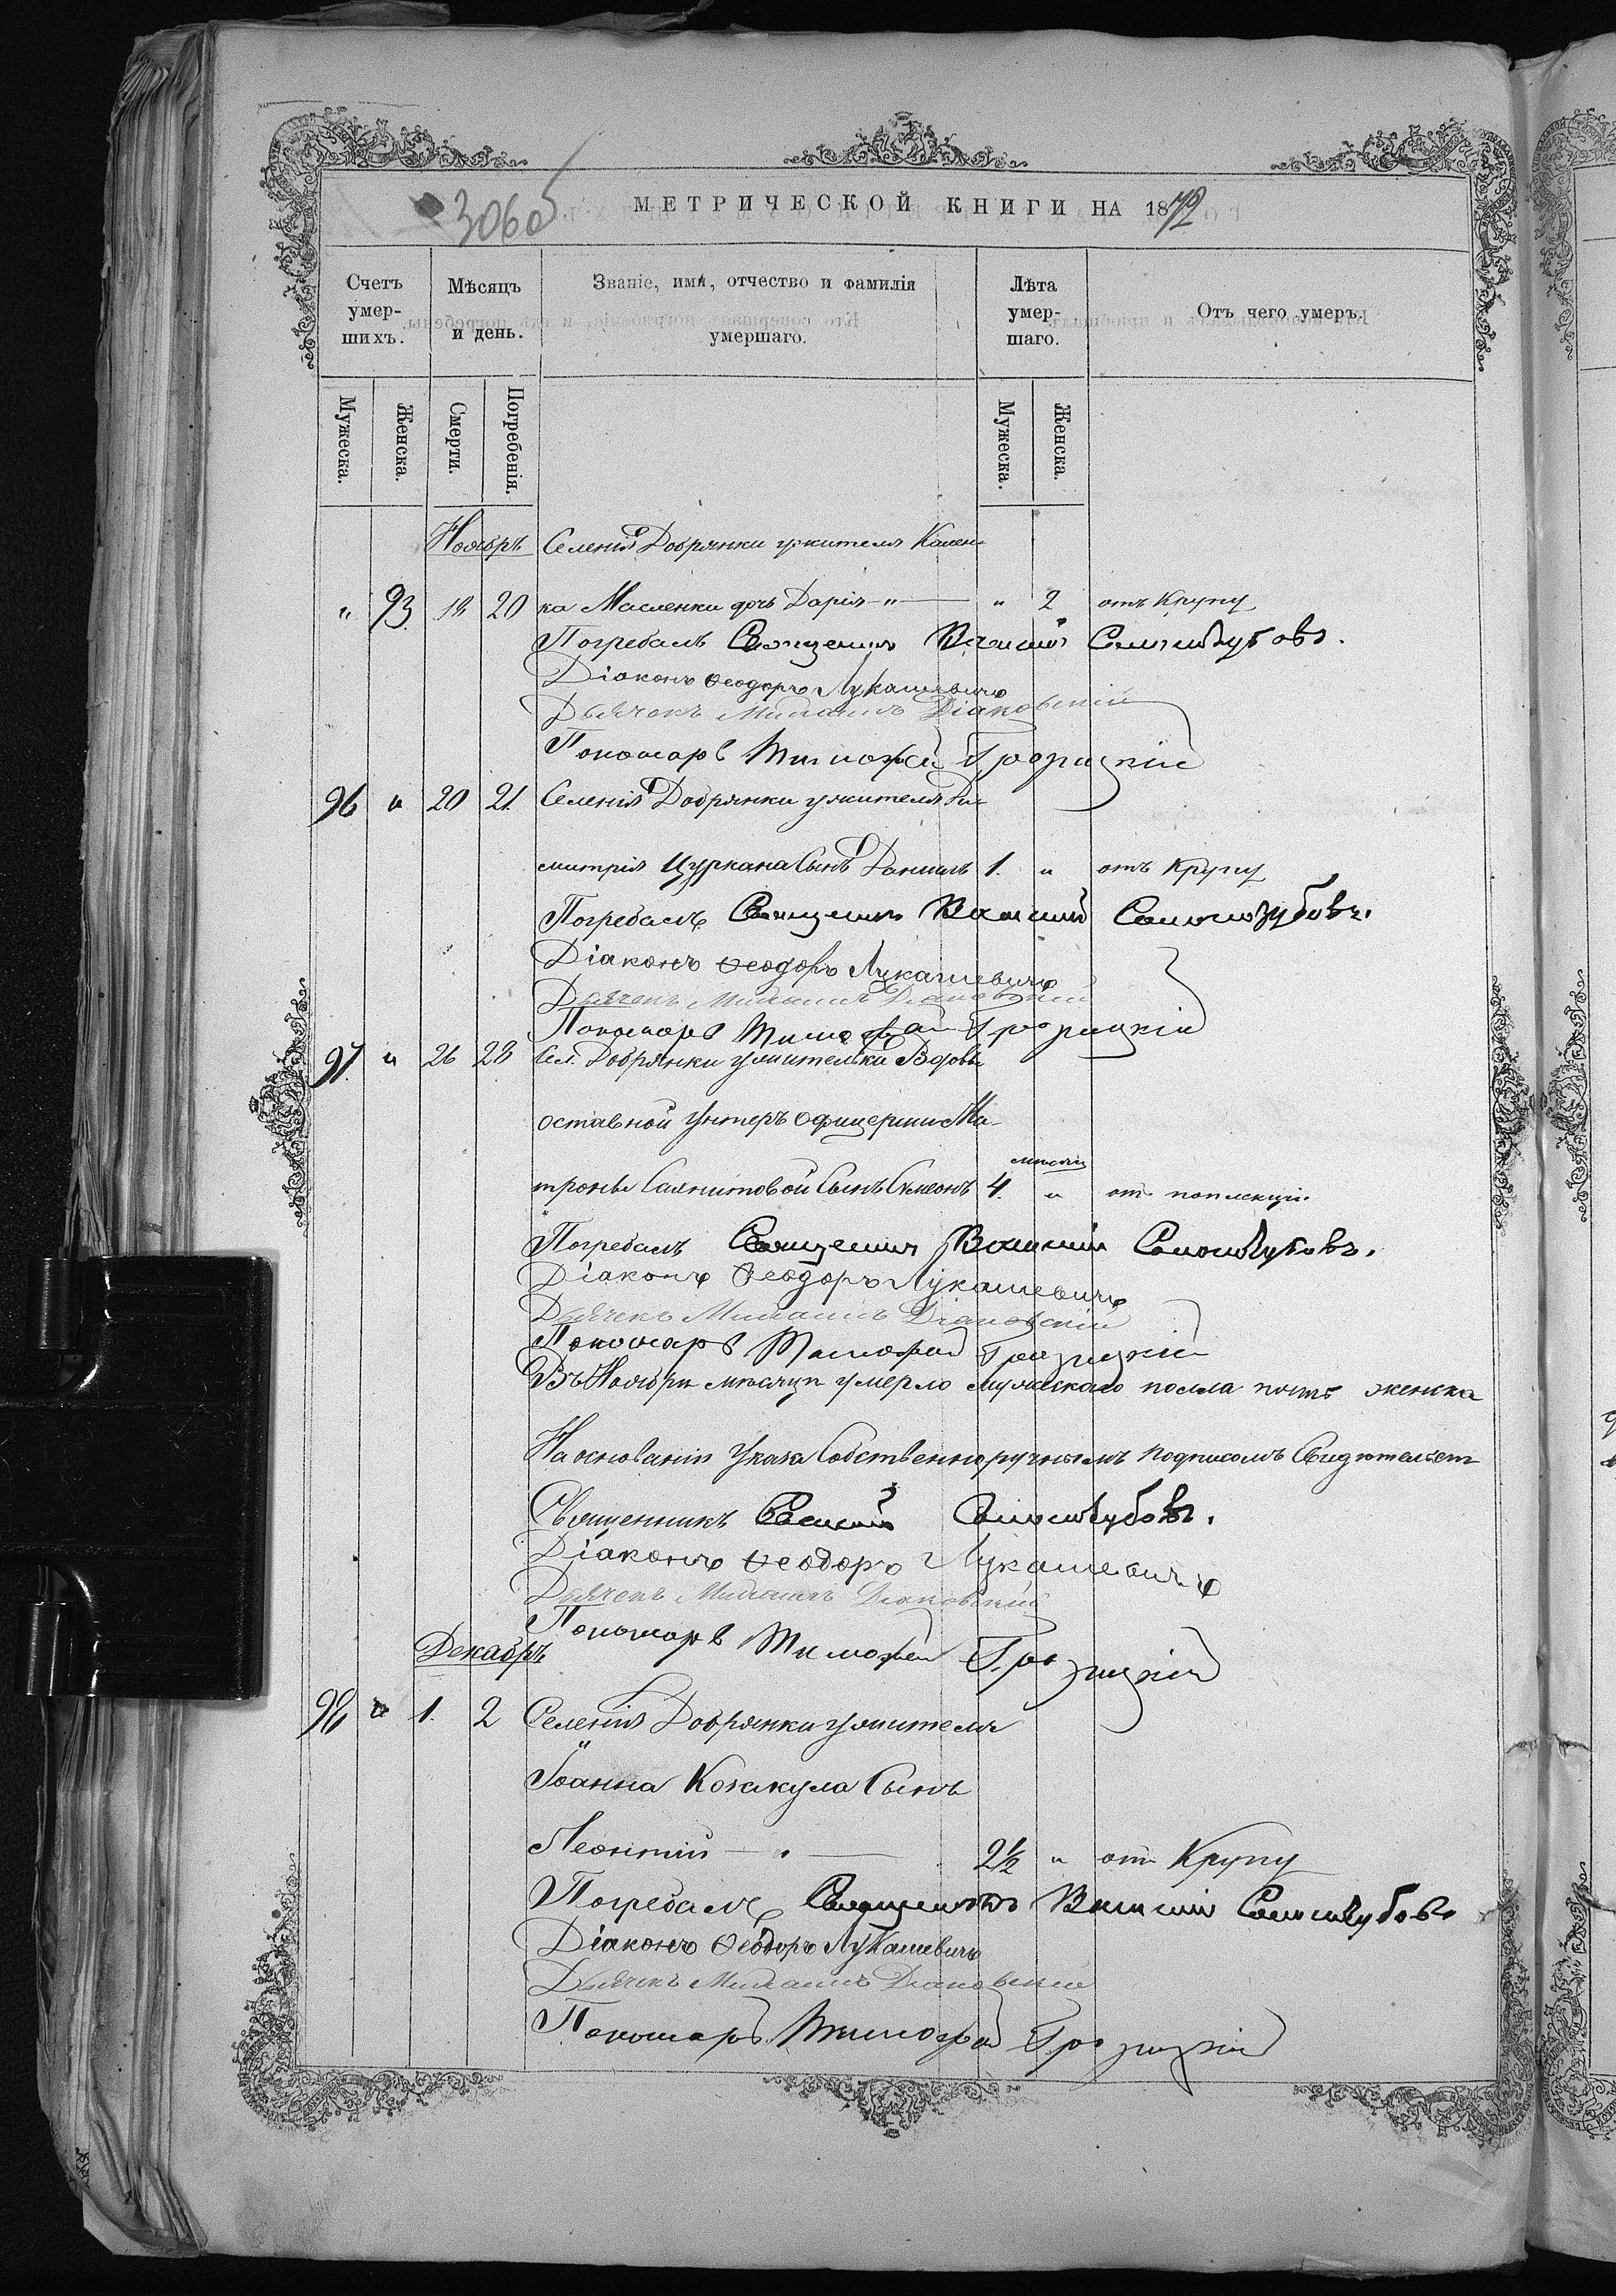 3060б
МЕТРИЧЕСКОЙ КНИГИ НА 1872
Счетъ умер-шихъ.
Мѣсяцъ и день.
Званіе, имя, отчество и фамилія умершаго.
Лѣта умер-шаго.
Отъ чего умеръ.
Мужеска. Женска. Смерти. Погребенія. Мужеска. Женска.
Ноябръ Селенія Добрянки жителя Кален-
" 93. 18 20 ка Масленки дочь Дарія " 2 отъ Крупу
Погребалъ Священникъ Василій
Діаконъ Ѳеодоръ Лукашевичъ
Дьячекъ Михаилъ Діаковскій
Пономарь Тимофей Грозицкій
96 " 20 21. Селенія Добрянки жителя Ди-
митрія Цуркана Сынъ Даніилъ 1. " отъ Крупу
Погребалъ Священникъ Василій
Діаконъ Ѳеодоръ Лукашевичъ
Дьячекъ Михаилъ Діаковскій
Пономарь Тимофей Грозицкій
97. " 26 28 Сел. Добрянки жительки Вдовы
оставной Унтеръ Офицерши Ма-
троны Сынъ Симеонъ 4. мѣсяц " отъ
Погребалъ Священникъ Василій
Діаконъ Ѳеодоръ Лукашевичъ
Дьячекъ Михаилъ Діаковскій
Пономарь Тимофей Грозицкій
Въ Ноябри мѣсяци умерло мужескаго полла пять женска
На основаніи Указа Собственноручнымъ подписомъ Свидѣтельст
Священникъ Василій
Діаконъ Ѳеодоръ Лукашевичъ
Дьячекъ Михаилъ Діаковскій
Пономарь Тимофей Грозицкій
Декабръ
98 " 1. 2 Селенія Добрянки жителя
Іоанна Сынъ
Леонтій 2½ " отъ Крупу
Погребалъ Священникъ Василій
Діаконъ Ѳеодоръ Лукашевичъ
Дьячекъ Михаилъ Діаковскій
Пономарь Тимофей Грозицкій